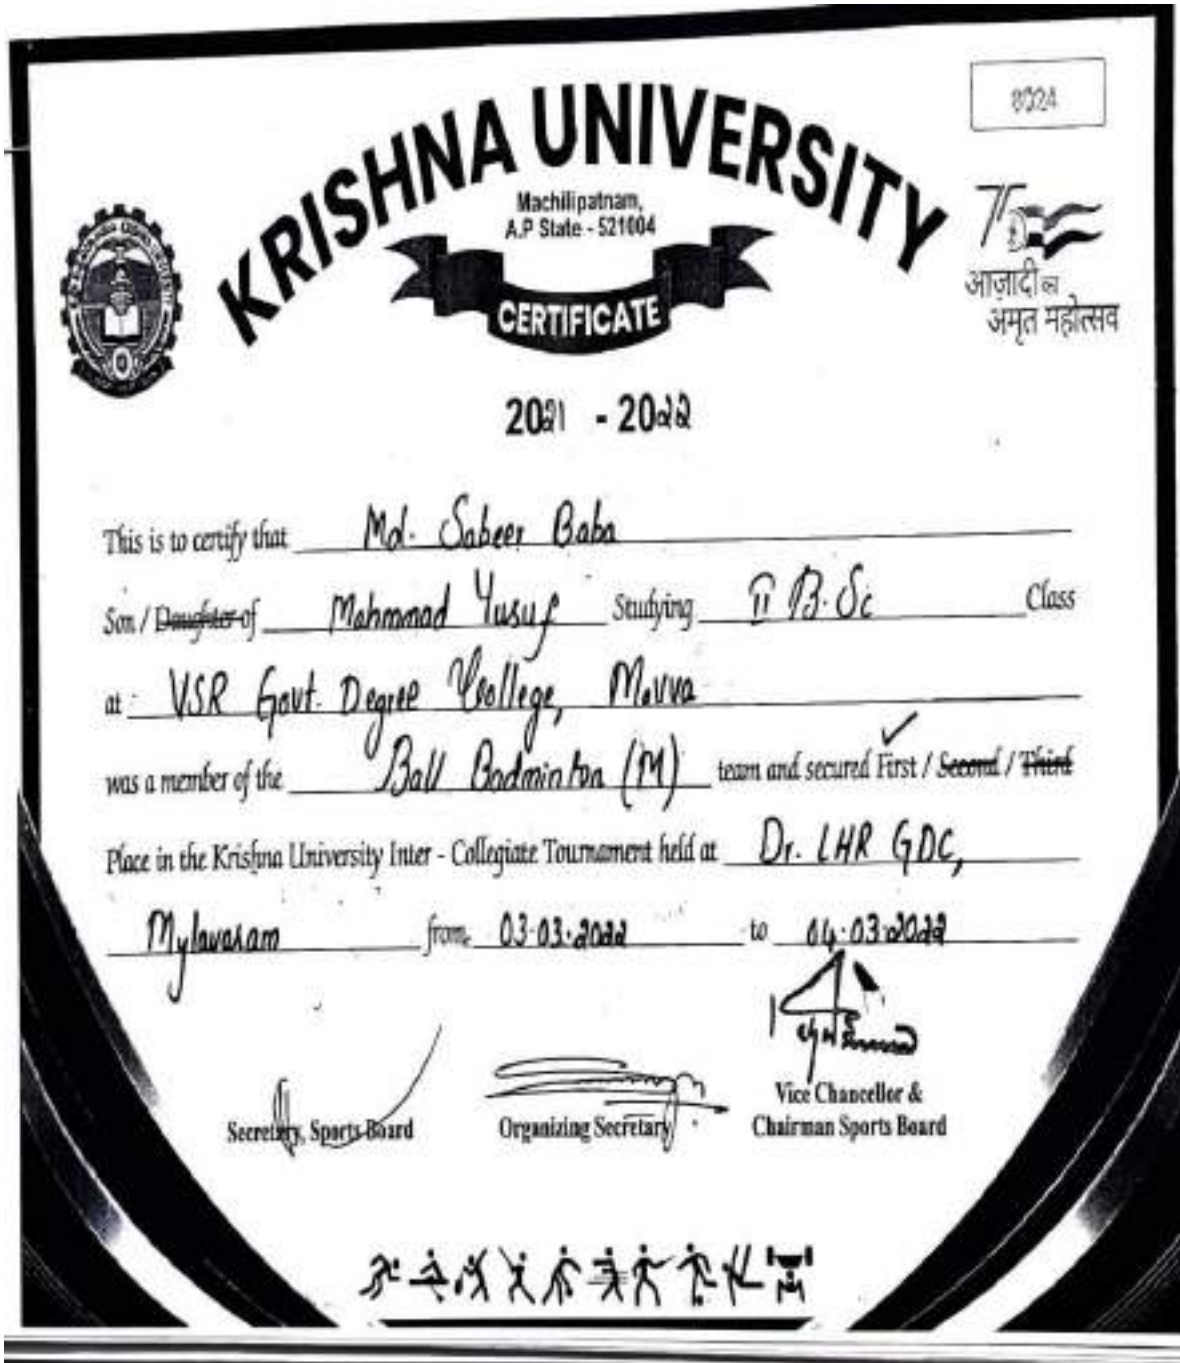 8024
KRISHNA UNIVERSITY
Machilipatnam,
A.P State - 521004
CERTIFICATE
75
आज़ादी का
अमृत महोत्सव
2021 - 2022
This is to certify that Md. Sabeer Baba
Son / Daughter of Mahmmad Yusuf Studying II B.Sc Class
at VSR Govt. Degree College, Movva
was a member of the Ball Badminton (M) team and secured First / Second / Third
Place in the Krishna University Inter - Collegiate Tournament held at Dr. LHR GDC,
Mylavaram from 03-03-2022 to 04-03-2022
Secretary, Sports Board
Organizing Secretary
Vice Chancellor &
Chairman Sports Board